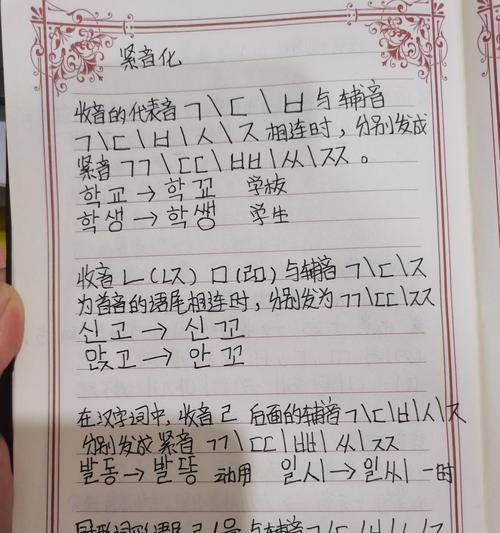 紧音化
收音的代表音 ㄱ\ㄷ\ㅂ 与辅音
ㄱ\ㄷ\ㅂ\ㅅ\ㅈ 相连时，分别发成
紧音 ㄱㄱ\ㄷㄷ\ㅂㅂ\ㅆ\ㅈㅈ。
학교 → 학꾜 学校
학생 → 학쌩 学生
收音 ㄴ(ㄵ) ㅁ(ㄻ) 与辅音 ㄱ\ㄷ\ㅈ
为首音的语尾相连时，分别发为 ㄱㄱ\ㄷㄷ\ㅈㅈ
신고 → 신꼬
앉고 → 안꼬
在汉字词中，收音 ㄹ 后面的辅音 ㄱ\ㄷ\ㅂ\ㅅ\ㅈ
分别发成紧音 ㄱㄱ\ㄷㄷ\ㅃ\ㅆ\ㅈㅈ
발동 → 발똥 动用 일시 → 일씨 一时
与辅音 ㄱ\ㄷ\ㅂ\ㅅ\ㅈ